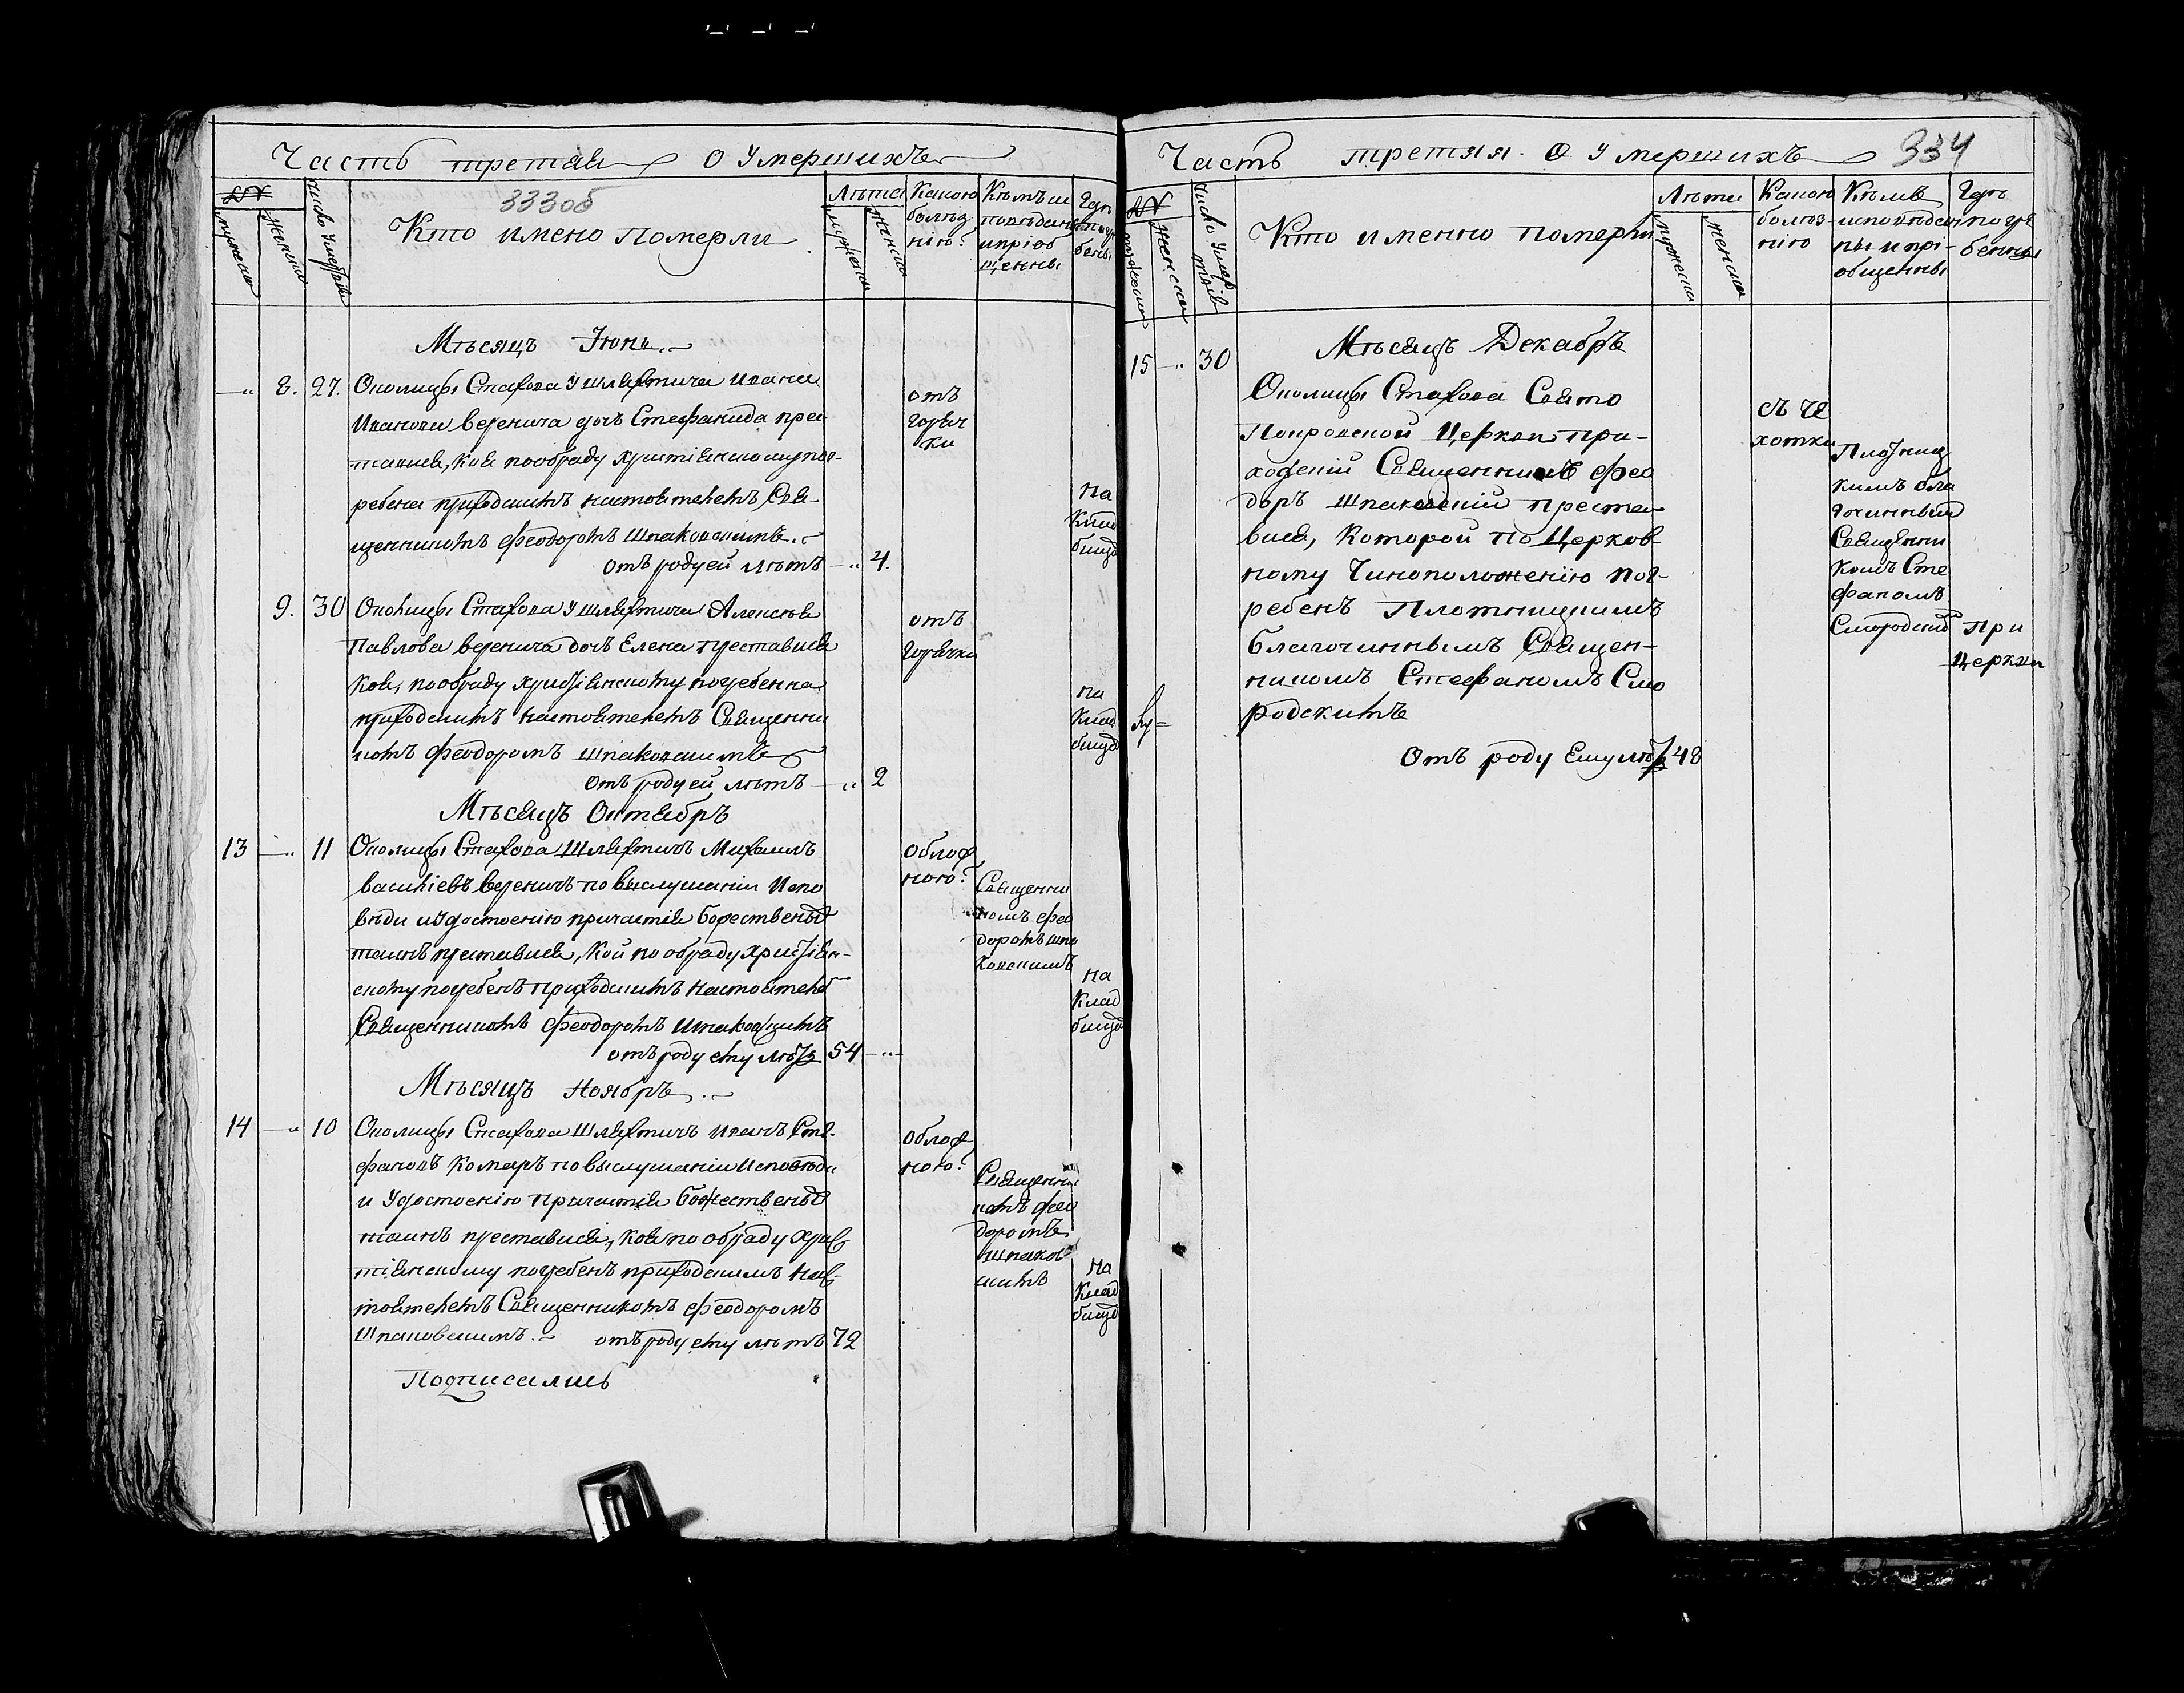 Часть третая О Умершихъ
333 об
№
мужеска
женска
Число Умертвія
Кто имено померли
Лѣта
мужеска
женска
Какою
болѣз
нію?
Кѣмъ и
поведаны
и пріоб
щенны
Гдѣ
погре
бены
Мѣсяцъ Іюнь
8. 27. Околицы Стахова У шляхтича Ивана
Иванова Веренича дочъ Стефанида прес-
тавися, коя пообряду христіянскому пог-
ребена приходскимъ настоятелемъ Свя-
щенникомъ Феодоромъ Шпаковскимъ
отъ роду ей лѣтъ 4.
отъ
горяч
ки
на
Клад
бищѣ
9. 30 Околицы Стахова У шляхтича Алексѣя
Павлова Веренича дочъ Елена преставися
коя, пообряду христіянскому погребенна
приходскимъ настоятелемъ Священни
комъ Феодоромъ Шпаковскимъ
отъ роду ей лѣтъ 2
отъ
горячки
на
Клад
бищѣ
Мѣсяцъ Октябръ
13 11 Околицы Стахова Шляхтичъ Михаилъ
Василіевъ Вереничъ по выслушаніи Испо
вѣди и удостоенію причастія божественых
таинъ преставися, кой по обряду христіян-
скому погребенъ приходскимъ настоятеле
Священникомъ Феодоромъ Шпаковскимъ
отъ роду ему лѣтъ 54
облож
ною?
Священни
комъ Фео
доромъ Шпа
ковскимъ
на
Клад
бищѣ
Мѣсяцъ Ноябръ
14 10 Околицы Стахова Шляхтичъ Иванъ Сте
фановъ Комаръ по выслушаніи Исповѣди
и Удостоенію Причастія божественых
таинъ преставися, коя по обряду Хрис
тіянскому погребенъ приходскимъ Нас
тоятелемъ Священникомъ Феодоромъ
Шпаковскимъ отъ роду ему лѣтъ 72
облож
ною?
Священни
комъ Фео
доромъ
Шпаков
скимъ
на
Клад
бищѣ
Подписались
Часть третяя О Умершихъ
334
№
мужеска
женска
Число Умер
твія
Кто именно померли
Лѣта
мужеска
женска
Какою
болѣз-
нію
Кѣмъ
исповѣдан
ны и прі-
общенны
Гдѣ
погре
бенны
Мѣсяцъ Декабръ
15 30
Околицы Стахова Свято
Покровской Церкви при-
ходскій Священникъ Фео
доръ Шпаковскій преста
вися, Которой по Церков
ному Чиноположенію пог-
ребенъ Плотницкимъ
благочиннымъ Священ-
никомъ Стефаномъ Смо
родскимъ
Отъ роду Ему лѣтъ 48
съ че
хотки
Плотниц
кимъ бла
гочинным
Священни
комъ Сте
фаномъ
Смородским
При
церкви